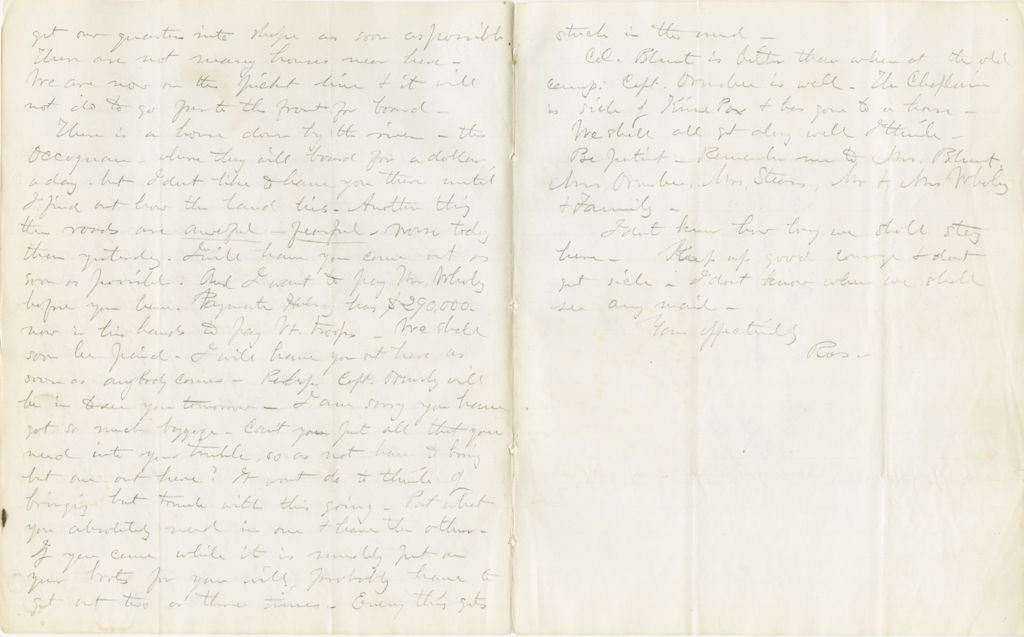 get our quarters into shape as soon as possible.
There are not many houses near here -
We are now on the picket line & it will
not do to go far to the front for board -
There is a house down by the river - the
Occoquan - where they will board for a dollar
a day - but I dont like to have you there until
I find out how the land lies. Another thing
the roads are aweful - fearful - worse today
than yesterday. I will have you come out as
soon as possible. And I want to pay Mr. Wholey
before you leave. Paymaster Halsey has $290,000-
now in his hands to pay Vt. troops - We shall
soon be paid - I will have you out here as
soon as anybody comes - Perhaps Capt. Ormsby will
be in to see you tomorrow - I am sorry you have
got so much baggage - Cant you put all that you
need into your trunk so as not have to bring
but one out here? It wont do to think of
bringing but trunk with this going - Put what
you absolutely need in one & leave the other -
If you come while it is muddy put on
your boots for you will probably have to
get out two or three times - Every thing gets
stuck in the mud -
Col. Blunt is better than when at the old
camp. Capt. Ormsbee is well - The Chaplain
is sick of Kine Pox & has gone to a house -
We shall all get along well I think -
Be patient - Remember me to Mrs. Blunt,
Mrs. Ormsbee, Mrs. Stearns, Mr & Mrs Wholey
& Family -
I dont know how long we shall stay
here - Keep up good courage & dont
get sick - I dont know when we shall
see any mail -
Your affectionately
Ros -